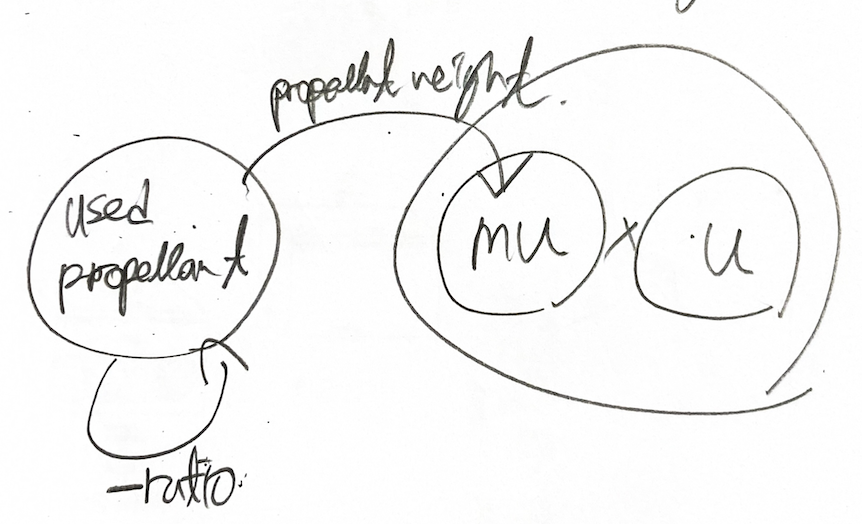 propellant weight.
used
propellant
mu x u
-ratio.